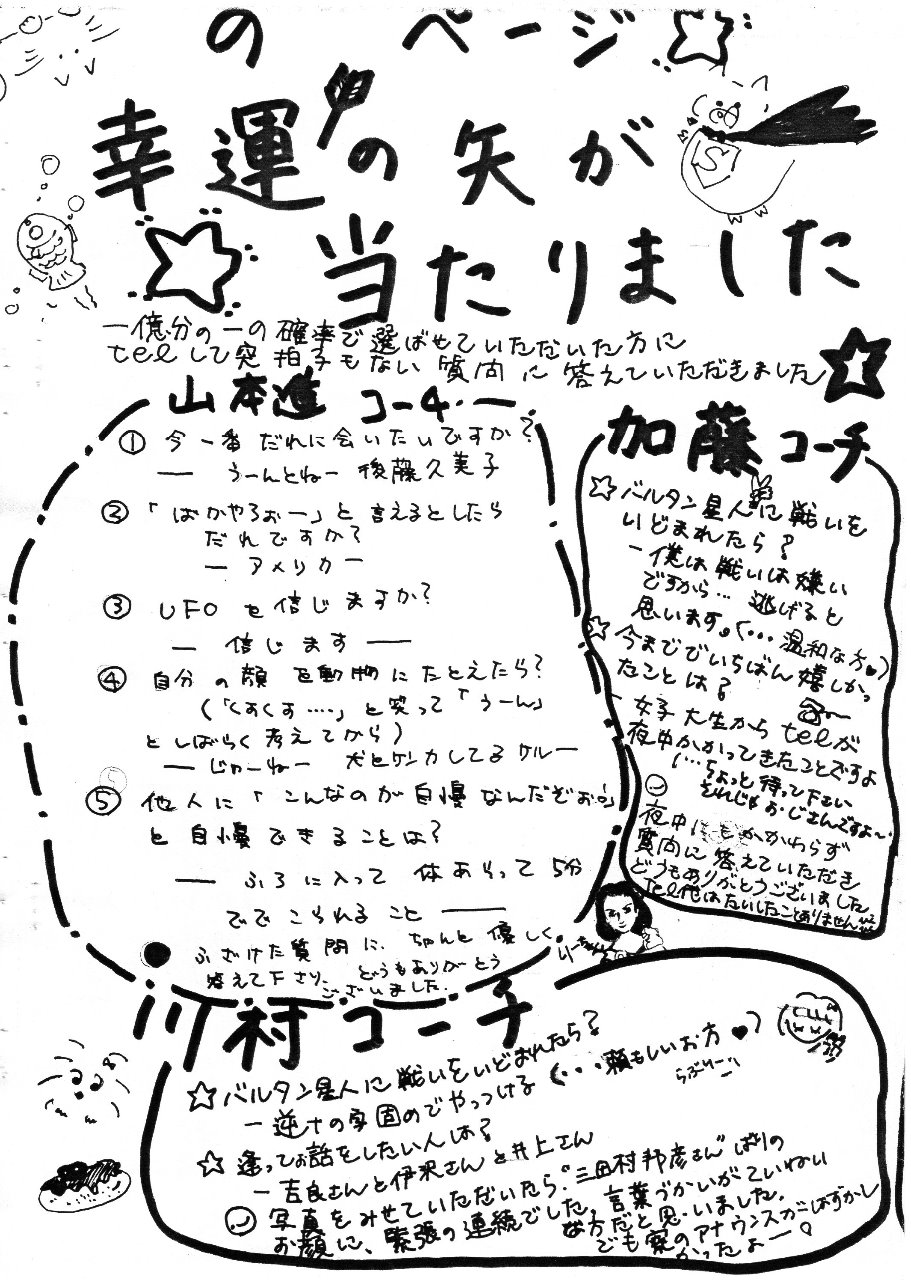 のページ
幸運の矢が
当たりました
一億分の一の確率で選ばせていただいた方に
telして突拍子もない質問に答えていただきました
山本進コーチ
① 今一番だれに会いたいですか?
— うーんとねー 後藤久美子
② 「ばかやろぉー」と言えるとしたら
だれですか?
— アメリカー
③ UFOを信じますか?
— 信じます —
④ 自分の顔を動物にたとえたら?
(「くすくす……」と笑って「うーん」
としばらく考えてから)
— じゅーねー 犬とケンカしてる
⑤ 他人に「こんなのが自慢なんだぞぉ!」
と自慢できることは?
— ふろに入って体あらって5分
ででこられること —
ふざけた質問に、ちゃんと優しく
答えて下さり、どうもありがとう
ございました。
加藤コーチ
☆バルタン星人に戦いを
いどまれたら?
—僕は戦いは嫌い
ですから… 逃げると
思います。(…温和な方♥)
☆今まででいちばん嬉しかっ
たことは?
女子大生からtelが
夜中かかってきたことですよ
(…ちょっと待って下さい
それじゃおじさんですよ〜
夜中にもかかわらず
質問に答えていただき
どうもありがとうございました
tel他はたいしたことありません
川村コーチ
☆バルタン星人に戦いをいどまれたら?
—逆十の字固めでやっつける (・・・頼もしいお方♥)
らぶりーい
☆逢ってお話をしたい人は?
—吉良さんと伊沢さんと井上さん
写真をみせていただいたら"三田村邦彦さん"ばりの
お顔に、緊張の連続でした。言葉づかいがていねい
な方だと思いました。
でも寮のアナウンスがはずかし
かったよー